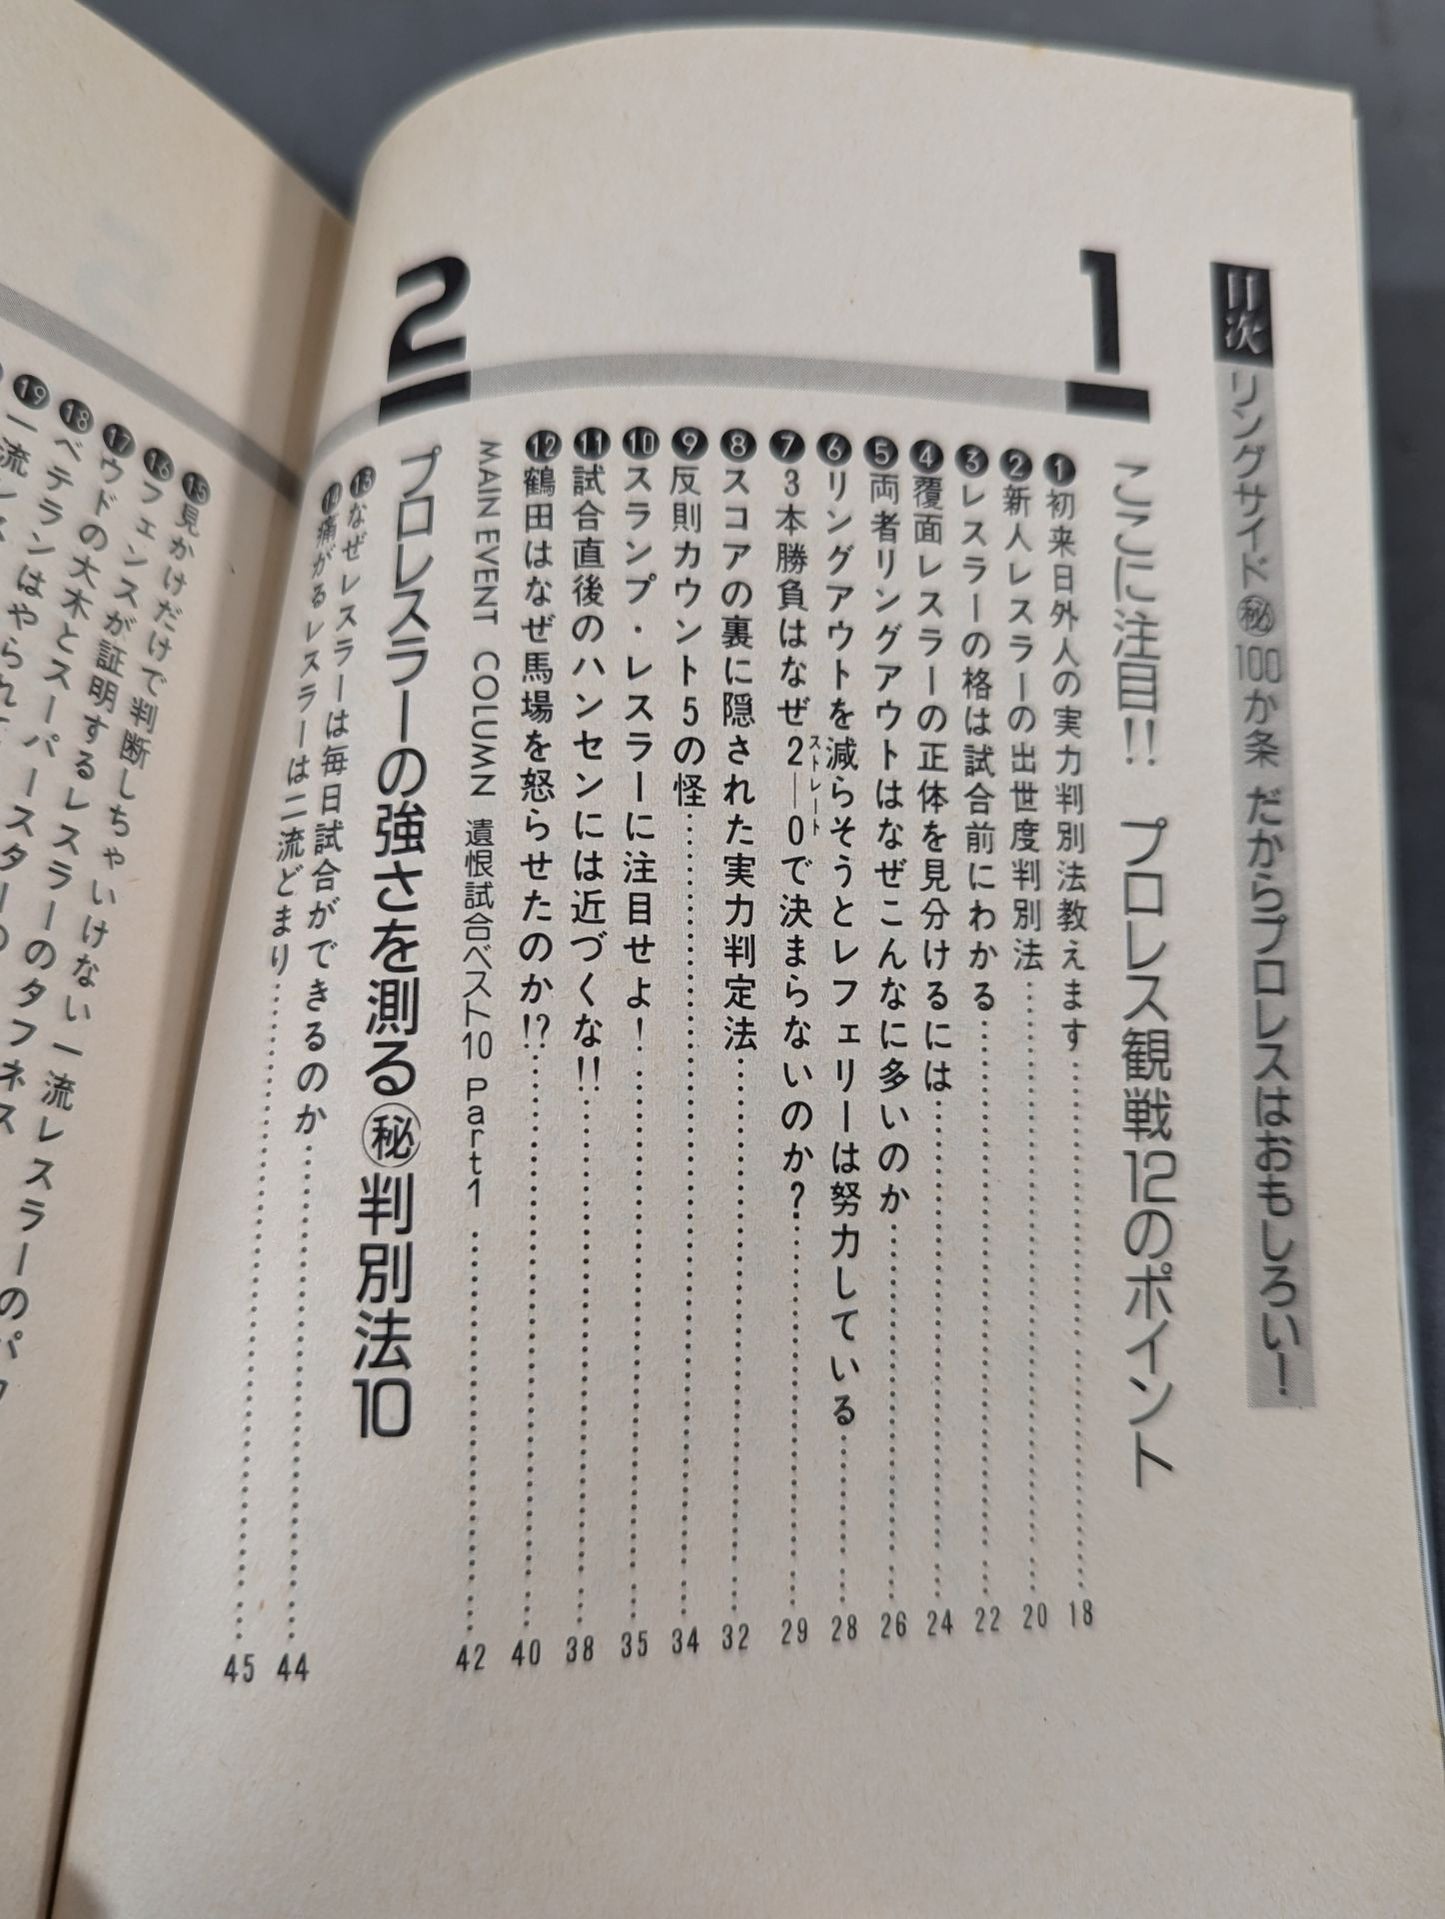 目次 リングサイド㊙100か条 だからプロレスはおもしろい!
1 ここに注目!! プロレス観戦12のポイント
❶初来日外人の実力判別法教えます……18
❷新人レスラーの出世度判別法……20
❸レスラーの格は試合前にわかる……22
❹覆面レスラーの正体を見分けるには……24
❺両者リングアウトはなぜこんなに多いのか……26
❻リングアウトを減らそうとレフェリーは努力している……28
❼3本勝負はなぜ2―0で決まらないのか?……29
ストレート
❽スコアの裏に隠された実力判定法……32
❾反則カウント5の怪……34
❿スランプ・レスラーに注目せよ!……35
⓫試合直後のハンセンには近づくな!!……38
⓬鶴田はなぜ馬場を怒らせたのか!?……40
MAIN EVENT COLUMN 遺恨試合ベスト10 Part1……42
2 プロレスラーの強さを測る㊙判別法10
⓭なぜレスラーは毎日試合ができるのか……44
⓮痛がるレスラーは二流どまり……45
⓯見かけだけで判断しちゃいけない一流レスラーの
⓰フェンスが証明するレスラーのタフネス
⓱ウドの大木とスーパースターの
⓲ベテランはやられ
⓳一流レス